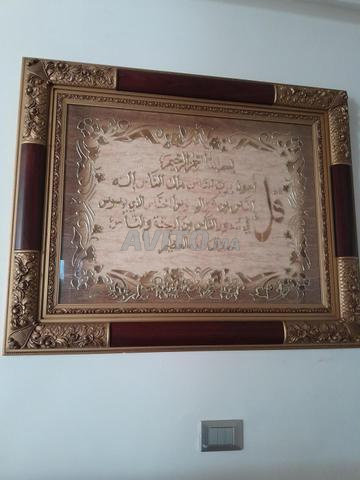 بسم الله الرحمن الرحيم
قل أعوذ برب الناس ملك الناس إله
الناس من شر الوسواس الخناس الذي يوسوس
في صدور الناس من الجنة والناس
العظيم
AVITO.MA